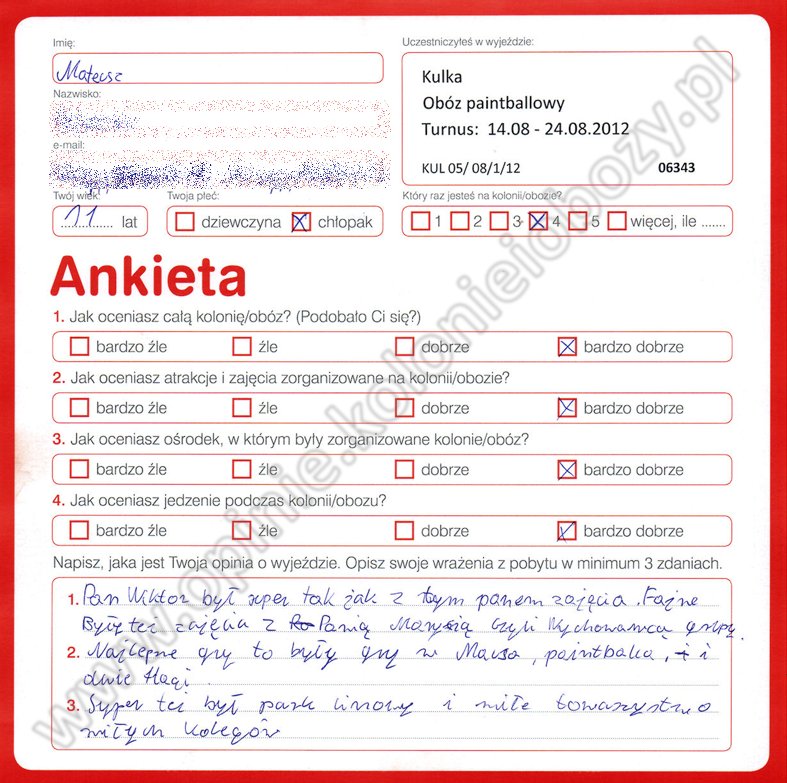 Imię:
Mateusz
Uczestniczyłeś w wyjeździe:
Kulka
Obóz paintballowy
Turnus: 14.08 - 24.08.2012
KUL 05/ 08/1/12 06343
Nazwisko:
e-mail:
Twój wiek:
11 lat
Twoja płeć:
dziewczyna chłopak
Który raz jesteś na kolonii/obozie?
1 2 3 4 5 więcej, ile .......
Ankieta
1. Jak oceniasz całą kolonię/obóz? (Podobało Ci się?)
bardzo źle źle dobrze bardzo dobrze
2. Jak oceniasz atrakcje i zajęcia zorganizowane na kolonii/obozie?
bardzo źle źle dobrze bardzo dobrze
3. Jak oceniasz ośrodek, w którym były zorganizowane kolonie/obóz?
bardzo źle źle dobrze bardzo dobrze
4. Jak oceniasz jedzenie podczas kolonii/obozu?
bardzo źle źle dobrze bardzo dobrze
Napisz, jaka jest Twoja opinia o wyjeździe. Opisz swoje wrażenia z pobytu w minimum 3 zdaniach.
1. Pan Wiktor był super tak jak z tym panem zajęcia. Fajne
Były też zajęcia z Panią czyli Wychowawcą grupy.
2. Najlepsze gry to były gry w , paintballa, i
dwie flagi
3. Super też był park linowy i miłe towarzystwo
miłych kolegów
www.opinie.kolonieiobozy.pl